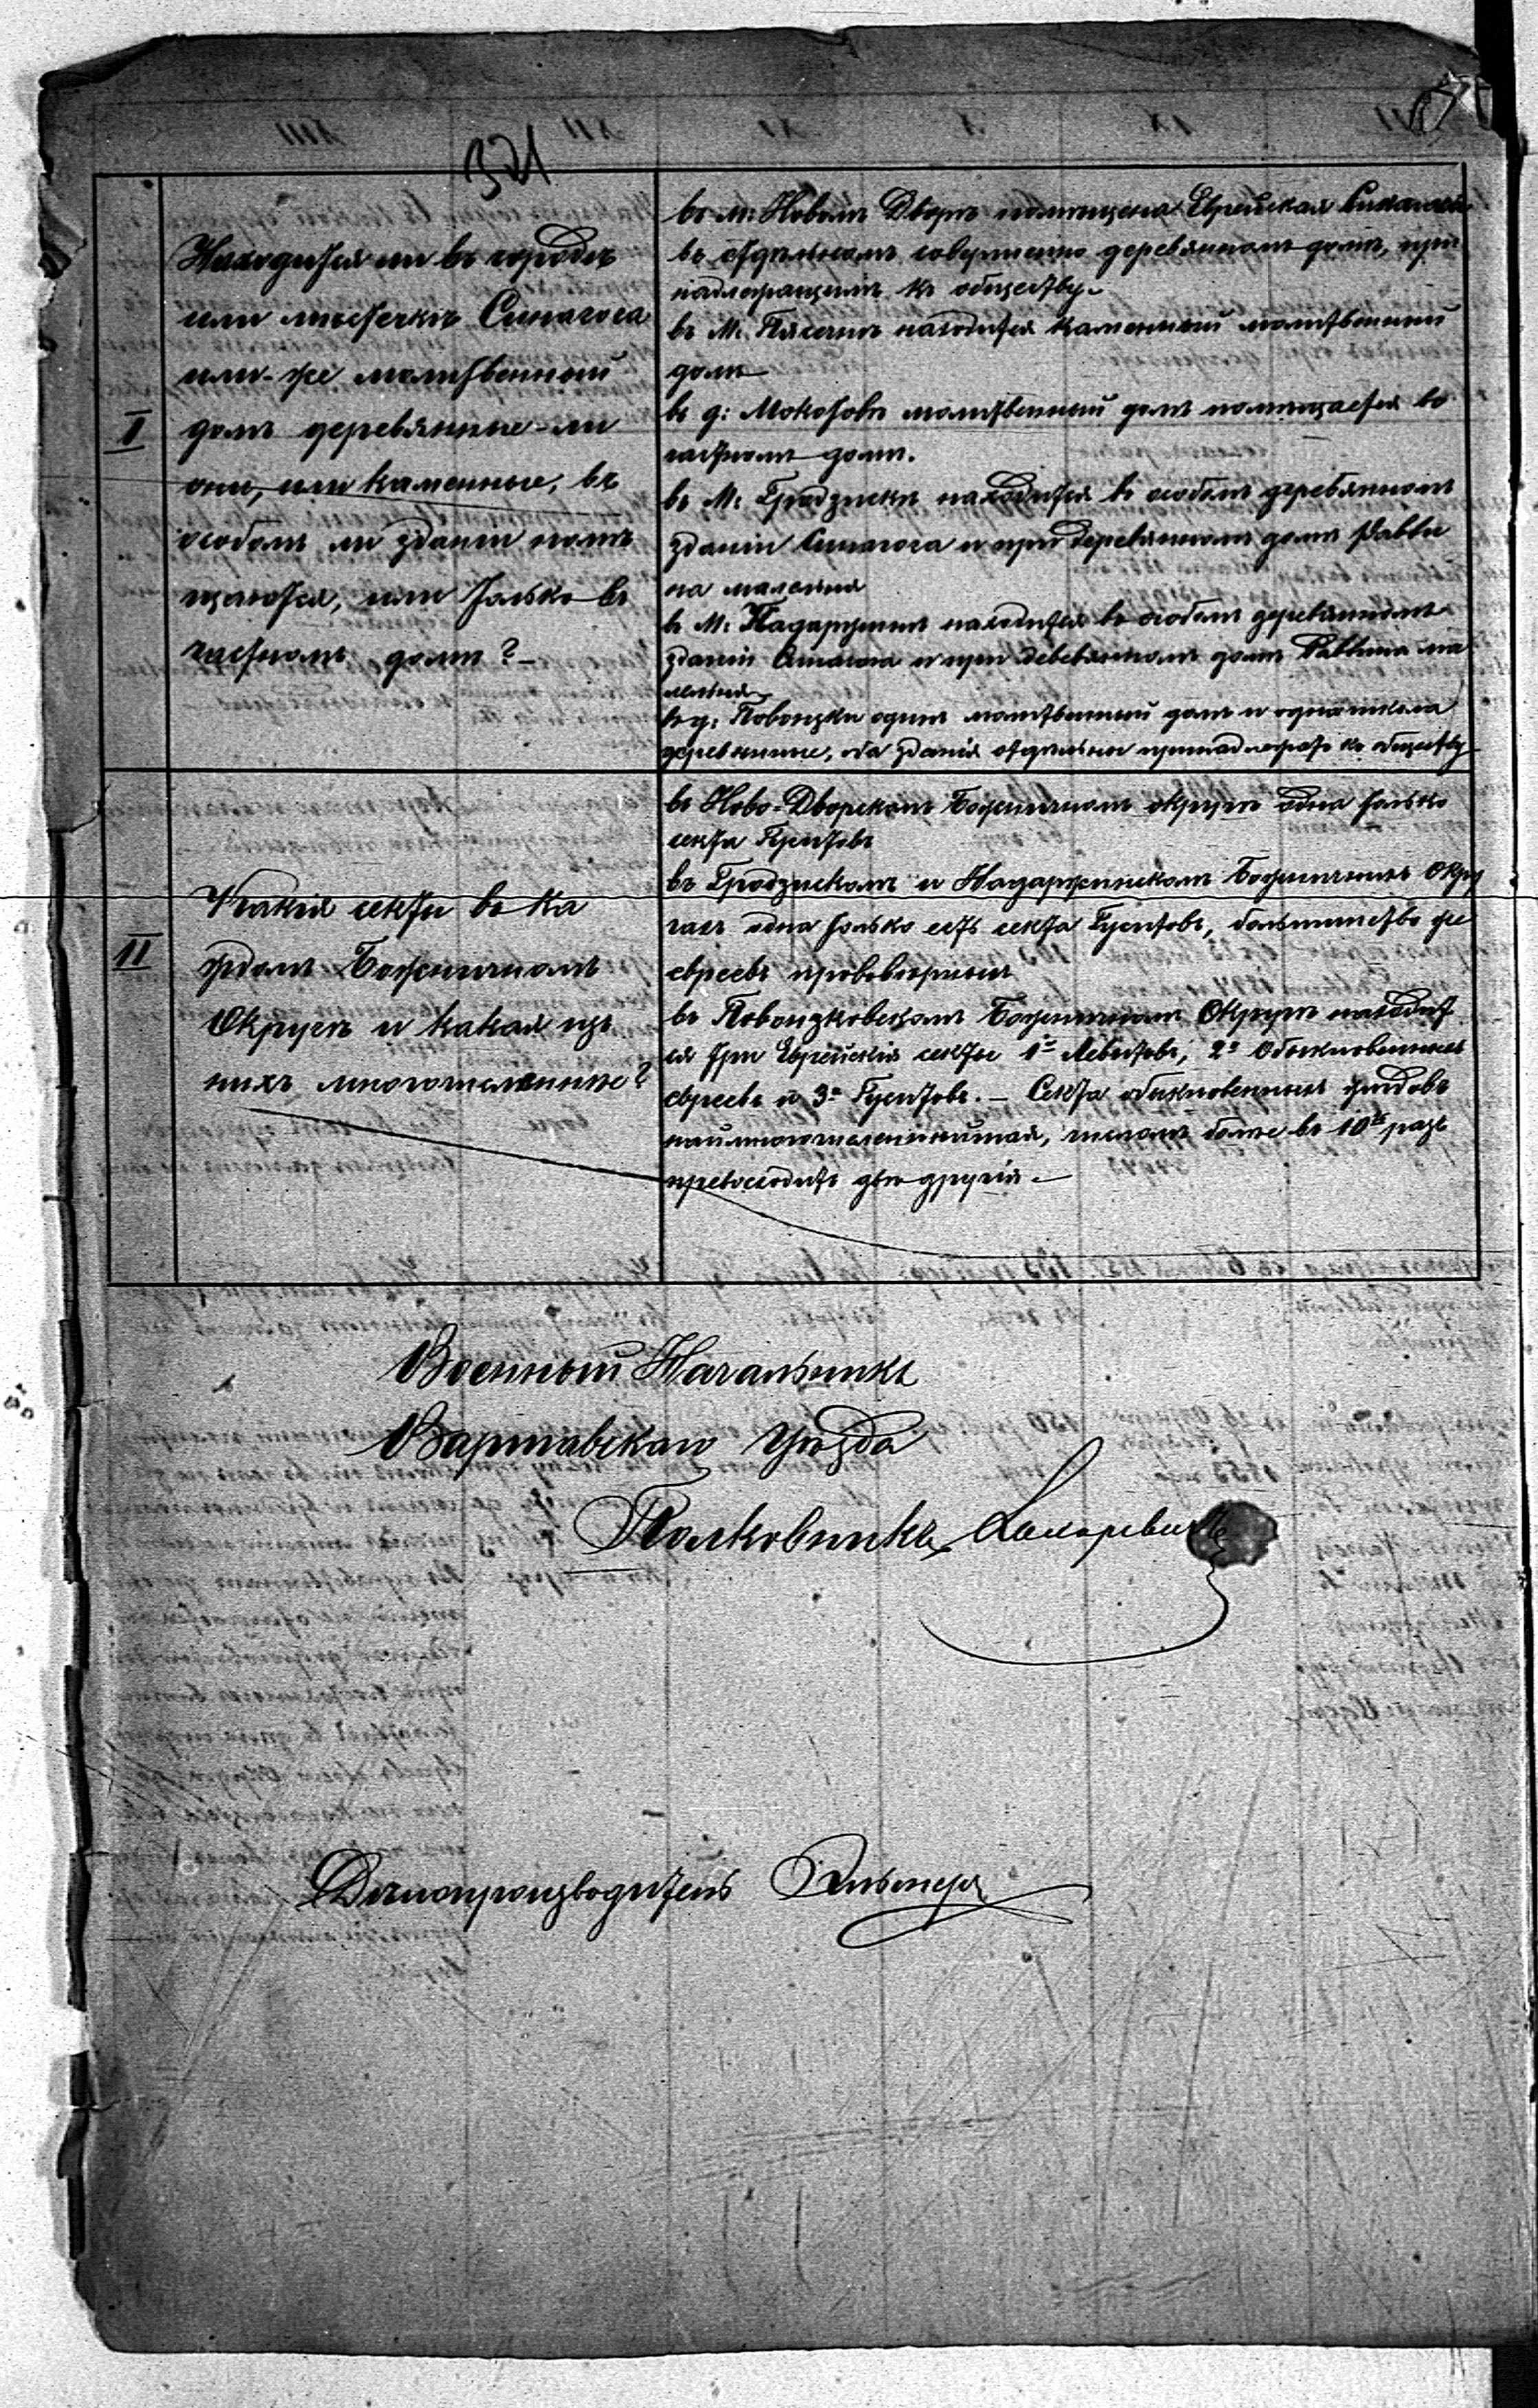 321
I
Находится ли въ городѣ
или мѣстечкѣ Синагога
или-же молитвенный
домъ деревянные-ли
они, или каменные, въ
особомъ ли зданіи помѣ
щаются, или только въ
частномъ домѣ?—
въ м: Новомъ Дворѣ помѣщена Еврейская Синагога
въ отдѣльномъ совершенно деревянномъ домѣ, при
надлежащимъ къ обществу.
въ М: Пясечнѣ находится каменный молитвенный
домъ
въ д: Мокотовѣ молитвенный домъ помѣщается въ
частномъ домѣ.
въ М: Гродзискѣ находится въ особомъ деревянномъ
зданіи Синагога и при деревянномъ домѣ Равви
на маленья
въ М: Надаржинѣ находится въ особомъ деревянномъ
зданіи Синагога и при девевянномъ домѣ Раввина ма
ленья
въ д: Повонзки одинъ молитвенный домъ и одна школа
деревянные, оба зданія отдѣльны принадлежатъ къ обществу
II
Какія секты въ ка
ждомъ Божничномъ
Округѣ и какая изъ
нихъ многочисленнѣе?
въ Ново-Дворскомъ Божничномъ округѣ одна только
секта Гуситовъ
въ Гродзискомъ и Надаржинскомъ Божничныхъ Окру
гахъ одна только есть секта Гуситовъ, большинство же
евреевъ прововѣрныхъ
въ Повонзковскомъ Божничномъ Округѣ находит
ся три Еврейскія секты 1я Левитовъ, 2я Обыкновенныхъ
евреевъ и 3я Гуситовъ. — Секта обыкновенныхъ жидовъ
наимногочисленнѣйшая, числомъ болѣе въ 10ть разъ
превосходитъ двѣ другія.—
Военный Начальникъ
Варшавскаго Уѣзда
Полковникъ
Дѣлопроизводитель